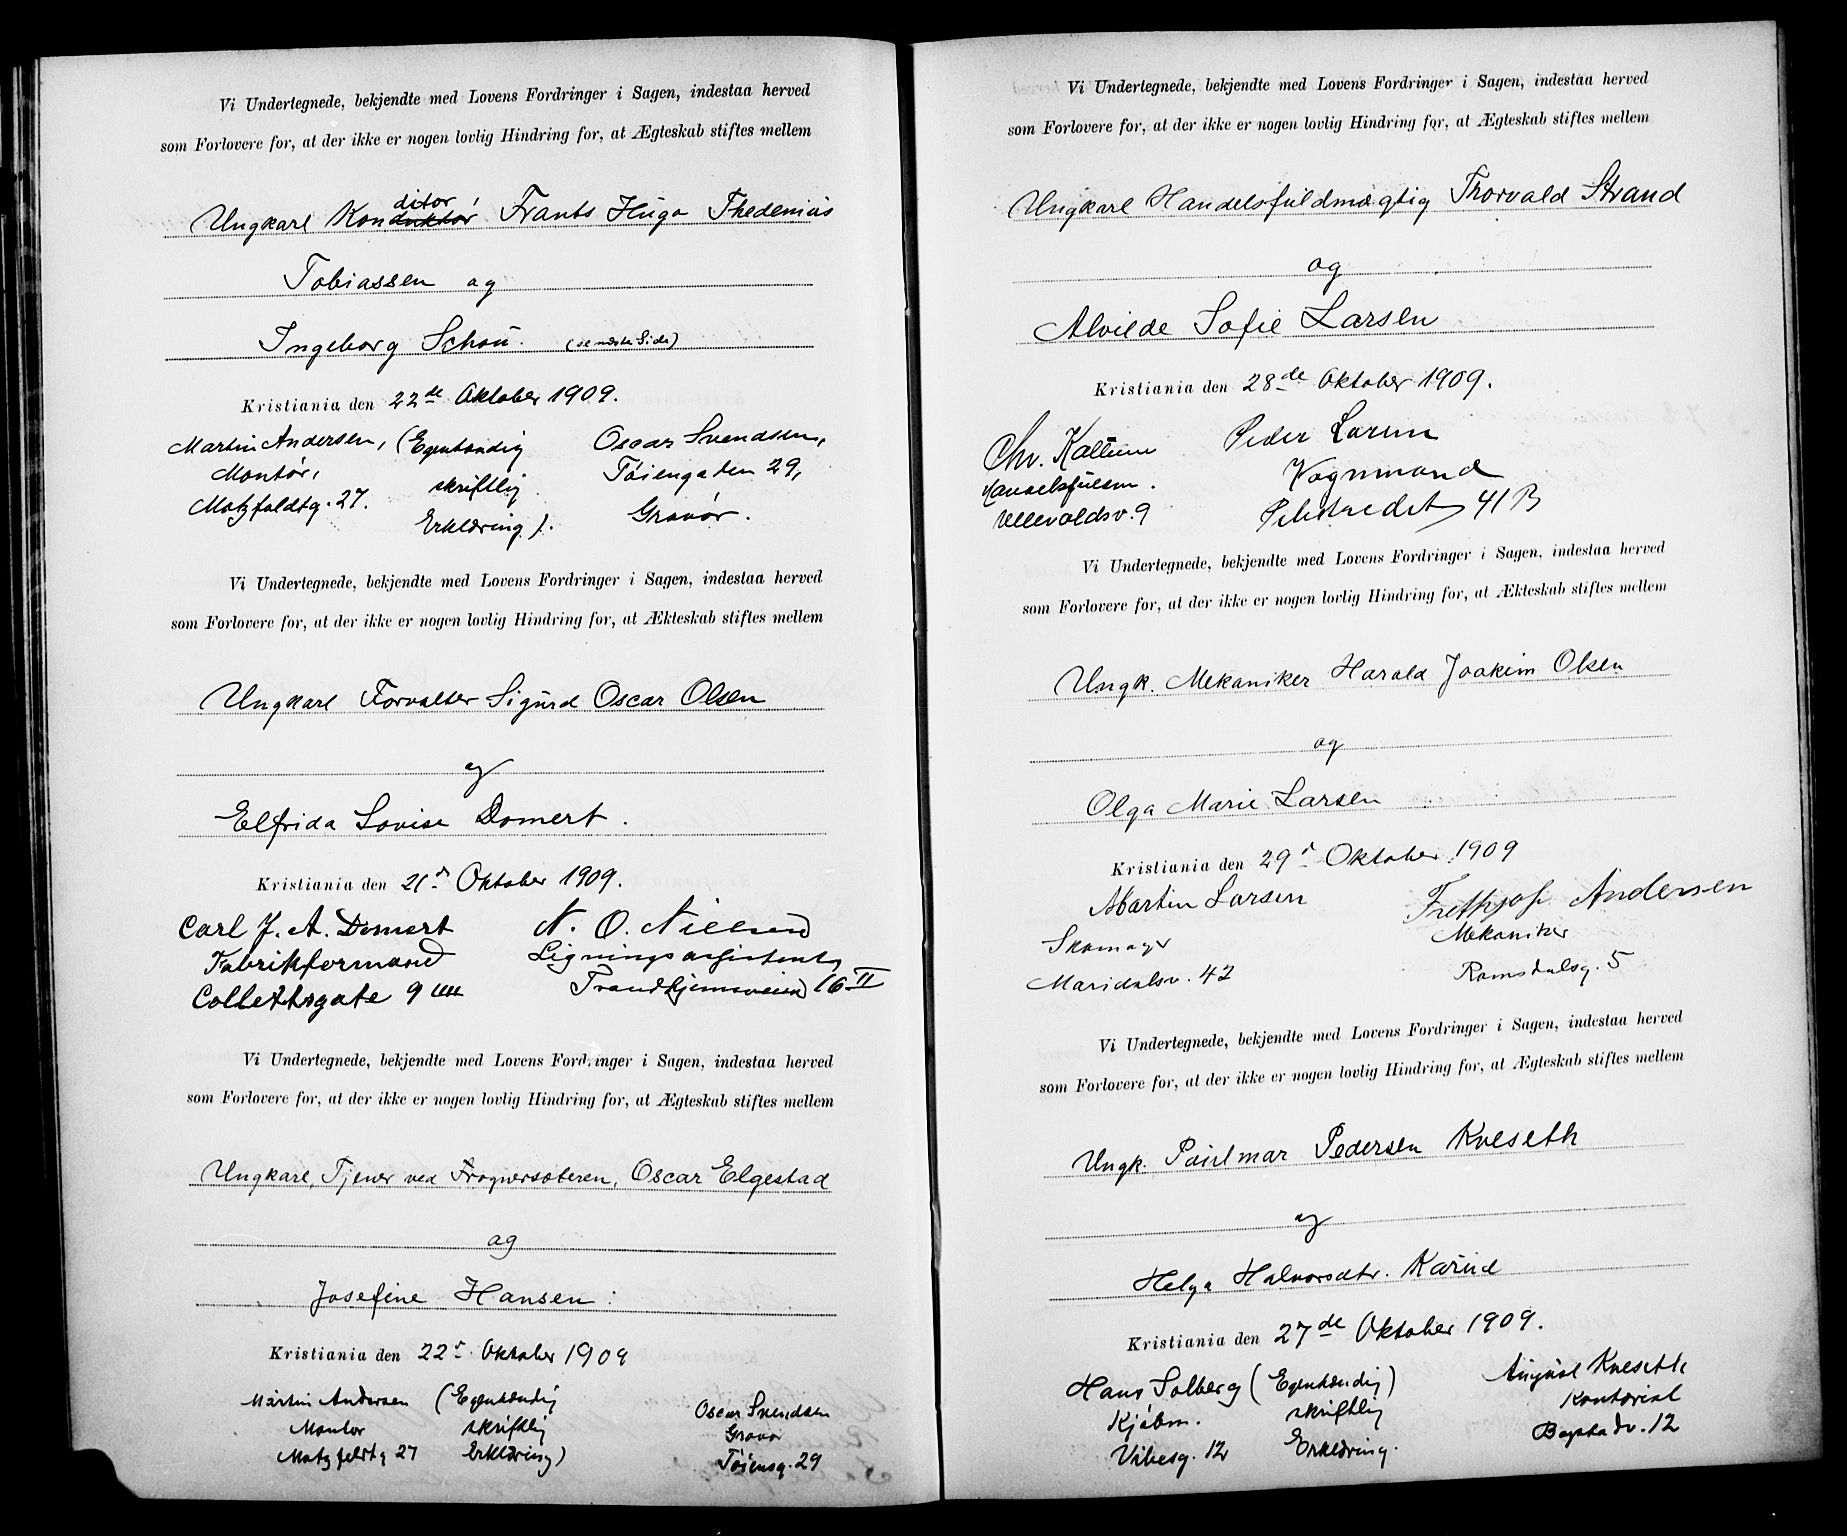 Vi Undertegnede, bekjendte med Lovens Fordringer i Sagen, indestaa herved
som Forlovere for, at der ikke er nogen lovlig Hindring for, at Ægteskab stiftes mellem
Ungkarl Konduktør ditor, Frants Hugo Thedenius
Tobiassen og
Ingeborg Schou. (se næste Side)
Kristiania den 22de Oktober 1909.
Martin Andersen, (Egenhændig Oscar Svendsen,
Montør, skriftlig Tøiengaden 29,
Motzfeldtg. 27. Erklæring). Gravør.
Vi Undertegnede, bekjendte med Lovens Fordringer i Sagen, indestaa herved
som Forlovere for, at der ikke er nogen lovlig Hindring for, at Ækteskab stiftes mellem
Ungkarl Forvalter Sigurd Oscar Olsen
og
Elfrida Lovise Domert.
Kristiania den 21d Oktober 1909.
Carl J. A. Domert N. O. Nielsen
Fabrikformand Ligningsassistent
Collettsgate 9 Trondhjemsveien 16 II
Vi Undertegnede, bekjendte med Lovens Fordringer i Sagen, indestaa herved
som Forlovere for, at der ikke er nogen lovlig Hindring for, at Ægteskab stiftes mellem
Ungkarl, Tjener ved Frognersæteren, Oscar Elgestad
og
Josefine Hansen:
Kristiania den 22d Oktober 1909
Martin Andersen (Egenhændig Oscar Svendsen
Montør skriftlig Gravør
Motzfeldtg 27 Erklæring) Tøiensg. 29
Vi Undertegnede, bekjendte med Lovens Fordringer i Sagen, indestaa herved
som Forlovere for, at der ikke er nogen lovlig Hindring for, at Ægteskab stiftes mellem
Ungkarl Handelsfuldmægtig Thorvald Strand
og
Alvilde Sofie Larsen
Kristiania den 28de Oktober 1909.
Chr. Peder Larsen
Vognmand
Ullevoldsv. 9 Pilestrædet 41 B
Vi Undertegnede, bekjendte med Lovens Fordringer i Sagen, indestaa herved
som Forlovere for, at der ikke er nogen lovlig Hindring for, at Ækteskab stiftes mellem
Ungk. Mekaniker Harald Joakim Olsen
og
Olga Marie Larsen
Kristiania den 29d Oktober 1909
Martin Larsen Frethjof Andersen
Skomager Mekaniker
Maridalsv. 42 Romsdalsg. 5
Vi Undertegnede, bekjendte med Lovens Fordringer i Sagen, indestaa herved
som Forlovere for, at der ikke er nogen lovlig Hindring for, at Ægteskab stiftes mellem
Ungk. Paulmar Pedersen Kveseth
og
Helga Halvorsdtr. Kårud
Kristiania den 27de Oktober 1909.
Hans Solberg (Egenhændig) August Kveseth
Kjøbm. skriftlig Kontorist
Vibesg. 12 Erklæring. Bogstadv. 12